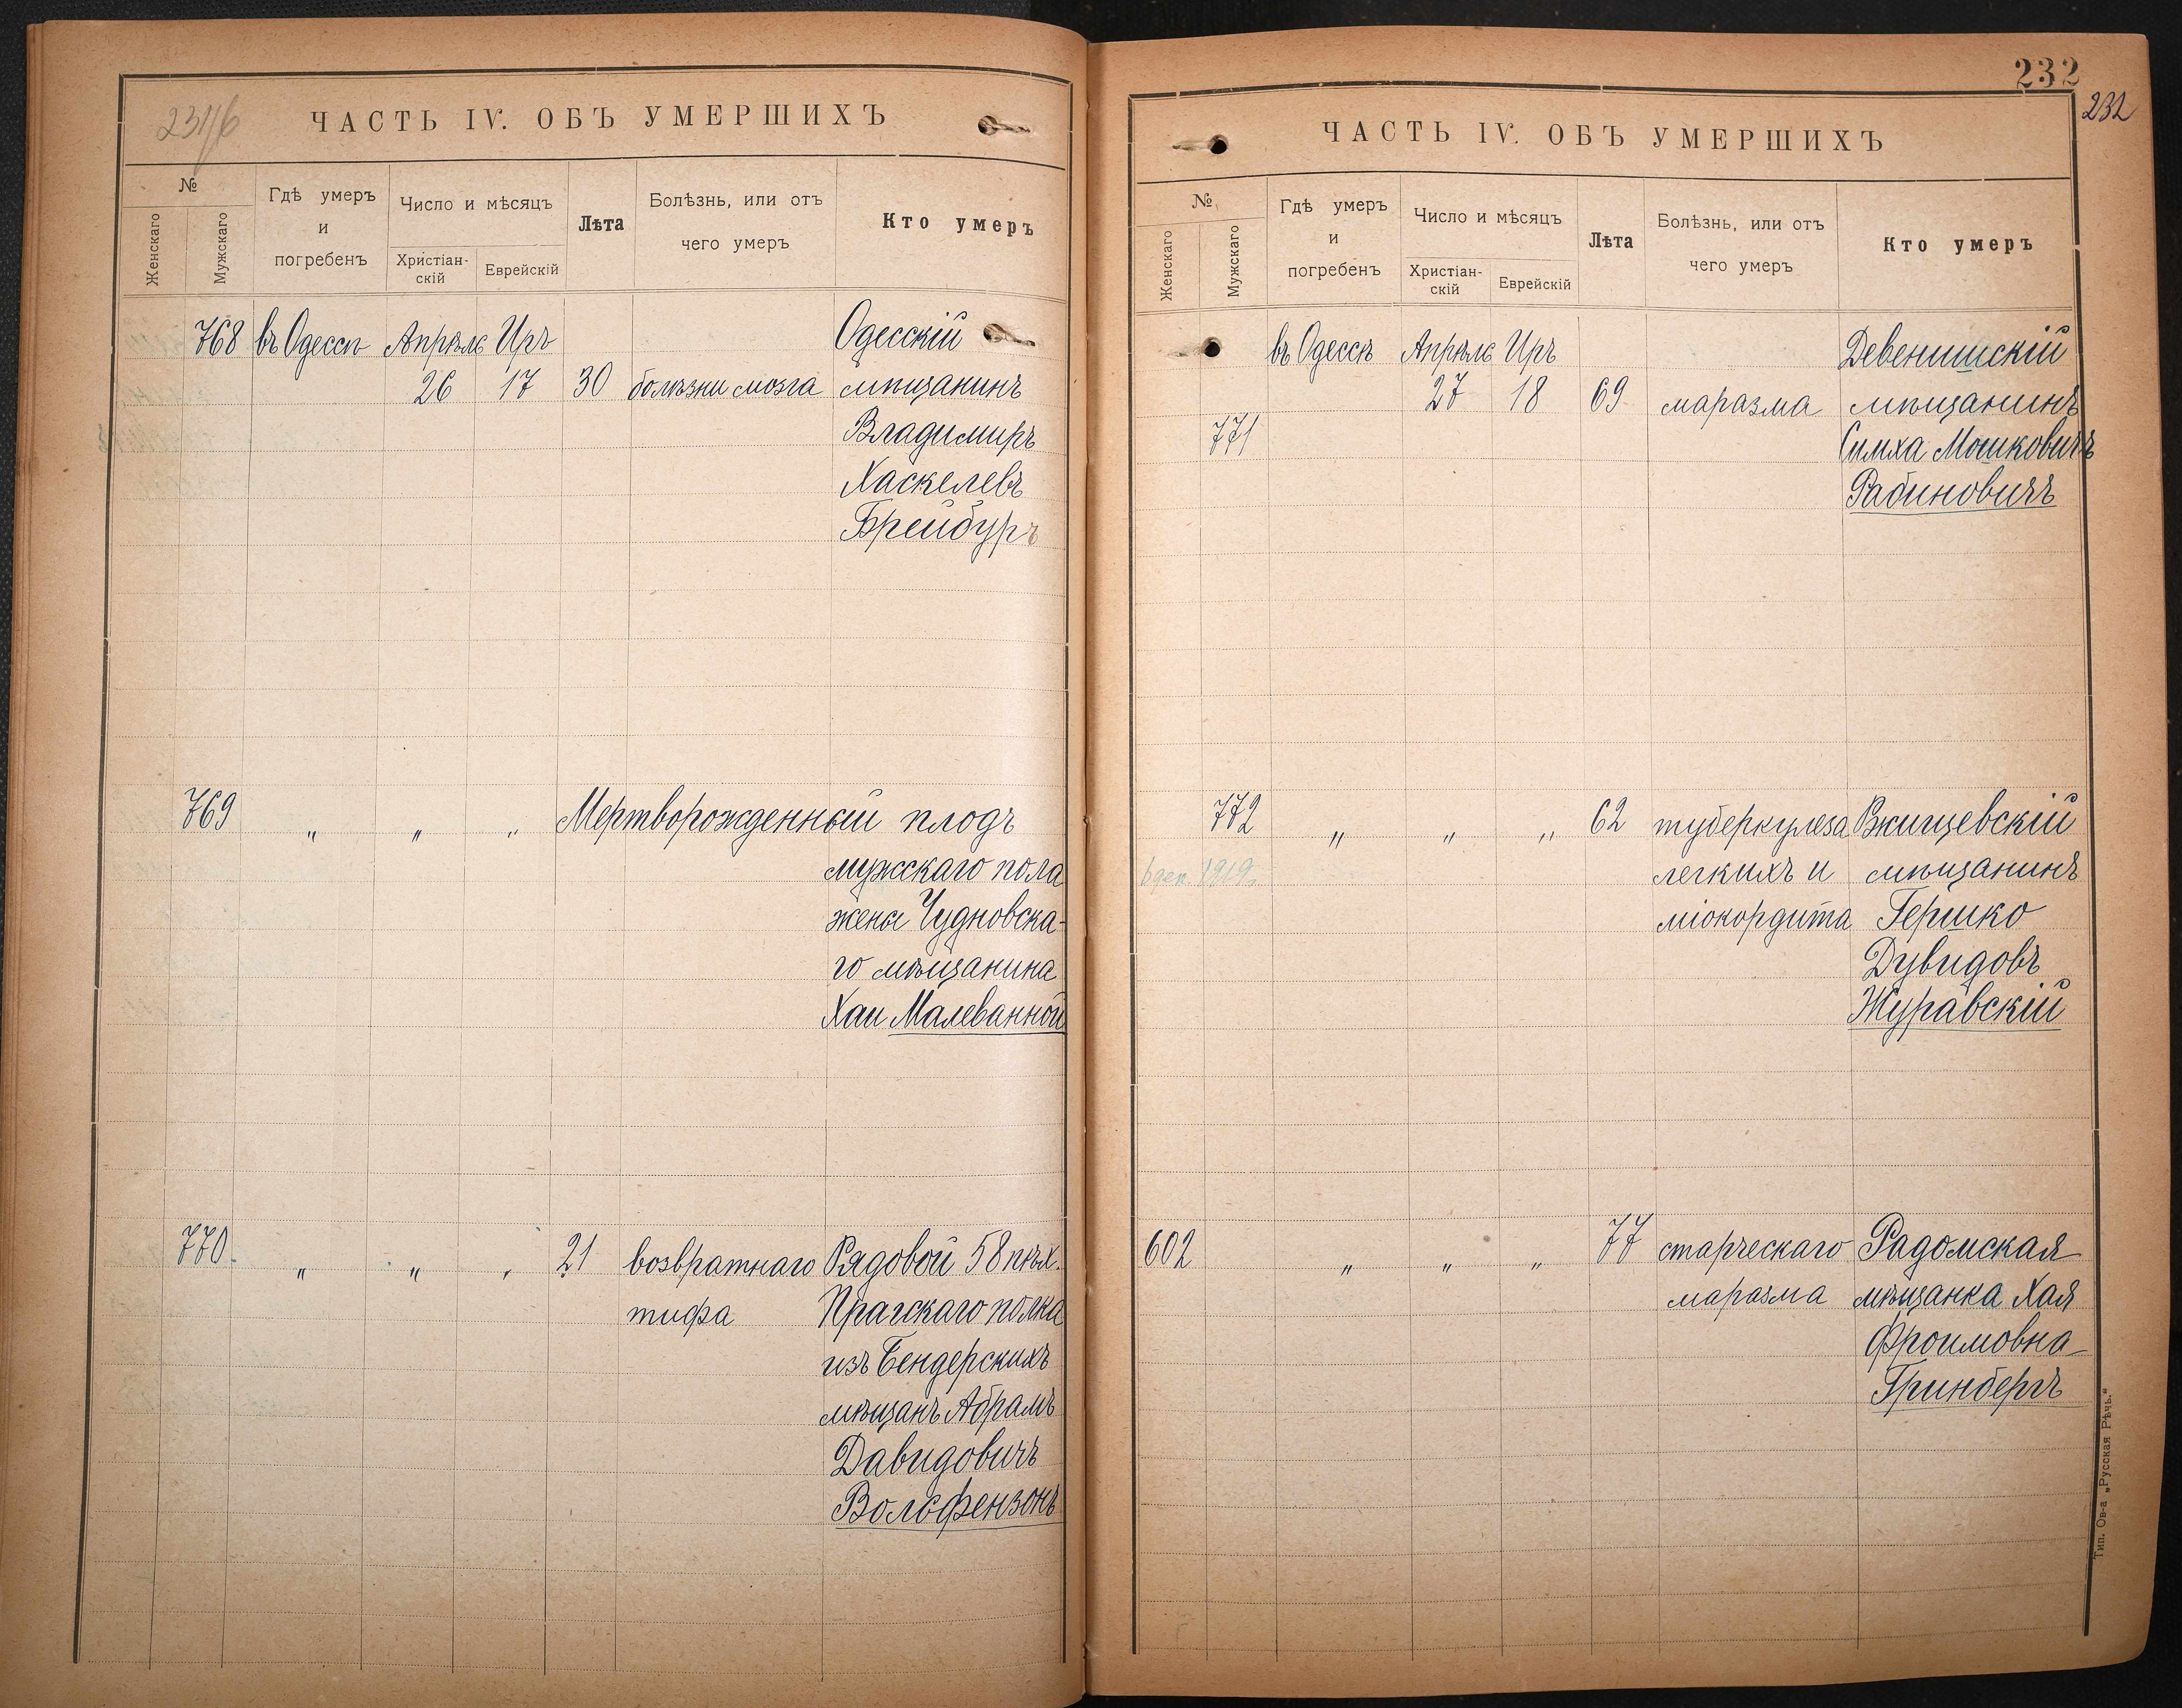 231/б
ЧАСТЬ IV. ОБЪ УМЕРШИХЪ
№
Женскаго
Мужскаго
Гдѣ умеръ
и
погребенъ
Число и мѣсяцъ
Христіан-
скій
Еврейскій
Лѣта
Болѣзнь, или отъ
чего умеръ
Кто умеръ
768 въ Одессѣ Апрѣля Иръ Одесскій
26 17 30 болѣзни мозга мѣщанинъ
Владимиръ
Хаскелевъ
Брейбуръ
769 " " " Мертворожденный плодъ
мужскаго пола
жены Чудновска-
го мѣщанина
Хаи Малеванной
770. " " " 21 возвратнаго Рядовой 58 пѣх.
тифа Прагскаго полка
изъ Бендерскихъ
мѣщанъ Абрамъ
Давидовичъ
Вольфензонъ
232
232
ЧАСТЬ IV. ОБЪ УМЕРШИХЪ
№
Женскаго
Мужскаго
Гдѣ умеръ
и
погребенъ
Число и мѣсяцъ
Христіан-
скій
Еврейскій
Лѣта
Болѣзнь, или отъ
чего умеръ
Кто умеръ
въ Одессѣ Апрѣля Иръ Девенишскій
27 18 69 маразма мѣщанинъ
771 Симха Мошковичъ
Рабиновичъ
772 " " " 62 туберкулеза Вжищевскій
6 дек. 1919. легкихъ и мѣщанинъ
міокордита Гершко
Дувидовъ
Журавскій
602 " " " 77 старческаго Радомская
маразма мѣщанка Хая
Фроимовна
Гринбергъ
Тип. Ов-а „Русская Рѣчь."